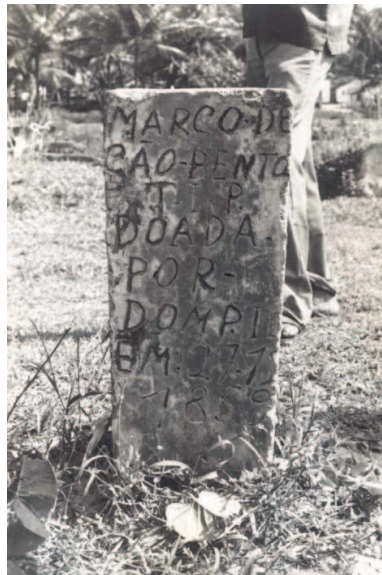 MARCO-DE
SÃO-BENTO
T. I P.
DOADA.
POR-
DOMP.I
EM.27.1